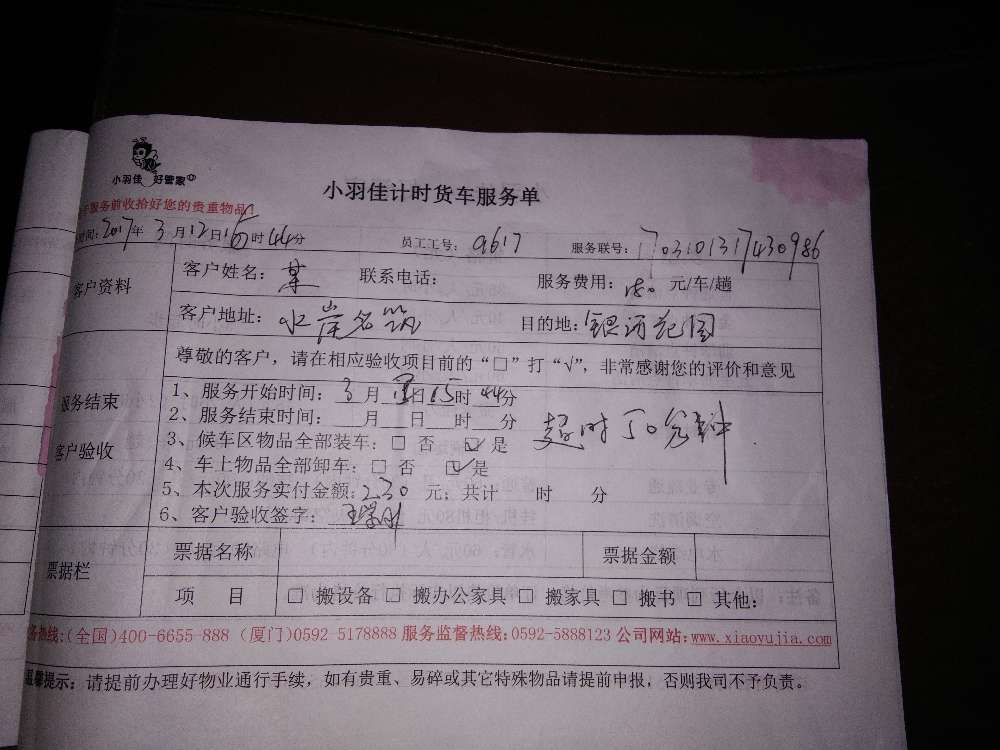 小羽佳 好管家
小羽佳计时货车服务单
服务前收拾好您的贵重物品!
时间:2017年3月12日15时44分 员工工号:9617 服务联号:1703101317430986
客户资料 客户姓名:某 联系电话: 服务费用:180 元/车/趟
客户地址:水岸名筑 目的地:银河花园
尊敬的客户,请在相应验收项目前的“□”打“√”,非常感谢您的评价和意见
服务结束
客户验收
1、服务开始时间:3月 日15时44分
2、服务结束时间: 月 日 时 分
超时50分钟
3、候车区物品全部装车:□ 否 ☑ 是
4、车上物品全部卸车:□ 否 ☑ 是
5、本次服务实付金额:230 元;共计 时 分
6、客户验收签字:
票据栏 票据名称 票据金额
项 目 □ 搬设备 □ 搬办公家具 □ 搬家具 □ 搬书 □ 其他:
务热线:(全国)400-6655-888 (厦门)0592-5178888 服务监督热线:0592-5888123 公司网站:www.xiaoyujia.com
温馨提示:请提前办理好物业通行手续,如有贵重、易碎或其它特殊物品请提前申报,否则我司不予负责。